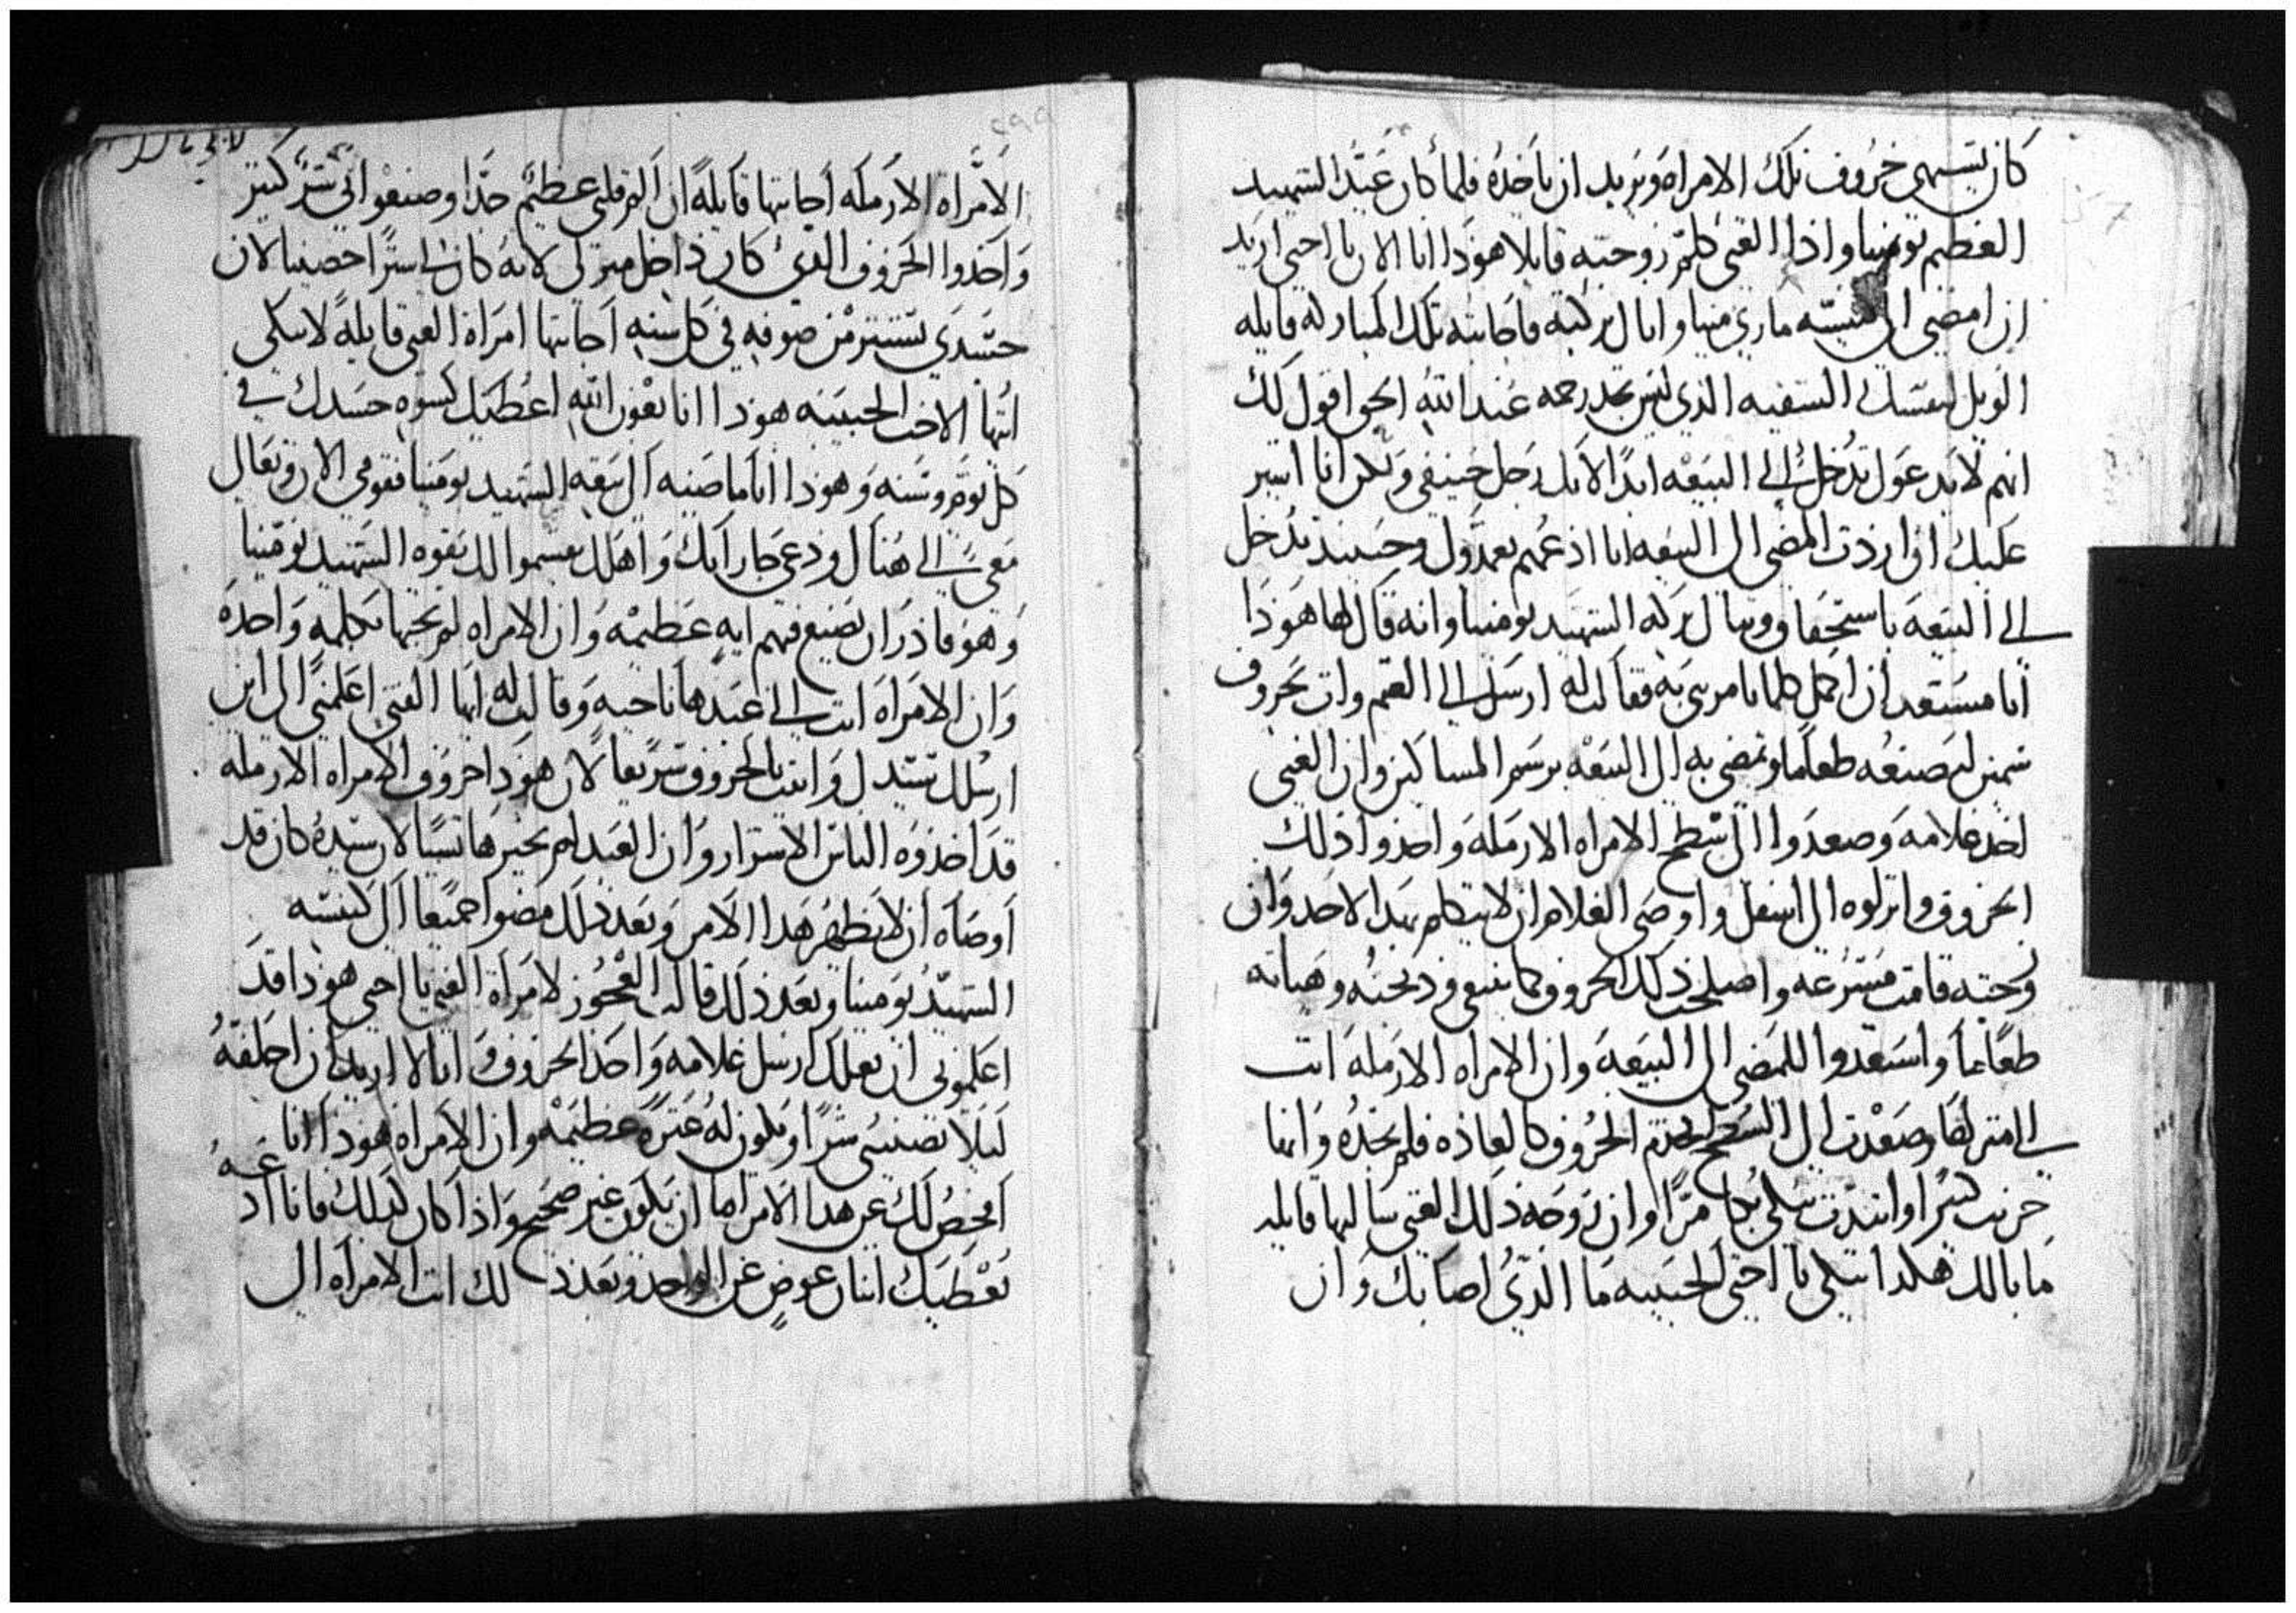 كان يشتهي خروف تلك الامراه ويريد ان ياخذه فلما كان عيد الشهيد
العظيم بومينا واذا الغني كلم زوجته قايلا هوذا انا الان يا اختي اريد
ان امضي الى كنيسة ماري مينا وانال بركته فاجابته تلك المباركه قايله
الويل لنفسك السقيه الذي ليس تجد رحمه عند الله الحق اقول لك
انهم لا يدعوك تدخل الى البيعه ابدا لانك رجل حنيفي ولكن انا اشير
عليك اذا اردت المضي الى البيعه انا ادعهم يعمدوك وحينيذ تدخل
الى البيعه باستحقاق وتنال بركه الشهيد بومينا وانه قال لها هوذا
انا مستعد ان اكمل كلما تامريني به فقالت له ارسل الى الغنم وات بخروف
سمين لنصنعه طعاما ونمضي به الى البيعه برسم المساكين وان الغني
اخد غلامه وصعدوا الى سطح الامراه الارمله واخدوا ذلك
الخروف وانزلوه الى اسفل واوصى الغلام ان لا يتكلم بهدا لاحد وان
زوجته قامت مسرعه واصلحت ذلك الخروف كما ينبغي ودبحته وهياته
طعاما واستعدوا للمضي الى البيعه وان الامراه الارمله اتت
الى منزلها وصعدت الى السطح لتخدم الخروف كالعاده فلم تجده وانها
حزنت كثيرا وابتدت تبكي بكا مرا وان زوجه ذلك الغني سالتها قايله
ما بالك هكدا تبكي يا اختي الحبيبه ما الذي اصابك وان
الامراه الارمله اجابتها قايلة ان الم قلبي عظيم جدا وصنعوا بي شر كبير
واخدوا الخروف الدي كان داخل منزلي لانه كان لي سترا حصينا لان
جسدي يستتر من صوفه في كل سنه اجابتها امراة الغني قايلة لا تبكي
ايتها الاخت الحبيبه هوذا انا بعون الله اعطيك كسوه جسدك في
كل يوم وسنه وهوذا انا ماضيه الى بيعه الشهيد بومينا فقومي الان وتعال
معي الى هناك ودعي جارانك واهلك يقسموا لك بقوه الشهيد بومينا
وهو قادر ان يصنع فيهم ايه عظيمه وان الامراه لم تجبها بكلمه واحده
وان الامراه اتت الى عبدها ناحيه وقالت له ايها الفتى اعلمني الى اين
ارسلك سيدك واتيت بالخروف سريعا لان هوذا خروف الامراه الارمله
قد اخذوه الناس الاشرار وان العبد لم يخبرها شيا لان سيده كان قد
اوصاه ان لا يظهر هدا الامر وبعد ذلك مضوا جميعا الى كنيسه
الشهيد بومينا وبعد ذلك قالت العجوز لامراة الغني يا اختي هوذا قد
اعلموني ان بعلك ارسل غلامه واخد الخروف وانا لا اريد ان احلفه
ليلا تصيبني شرا ويكون له عثره عظيمه وان الامراه هوذا انا
افحص لك عن هدا الامر اما ان يكون غير صحيح واذا كان كذلك فانا ادعه
يعطيك اثنان عوض عن الواحد وبعد ذلك اتت الامراه الى